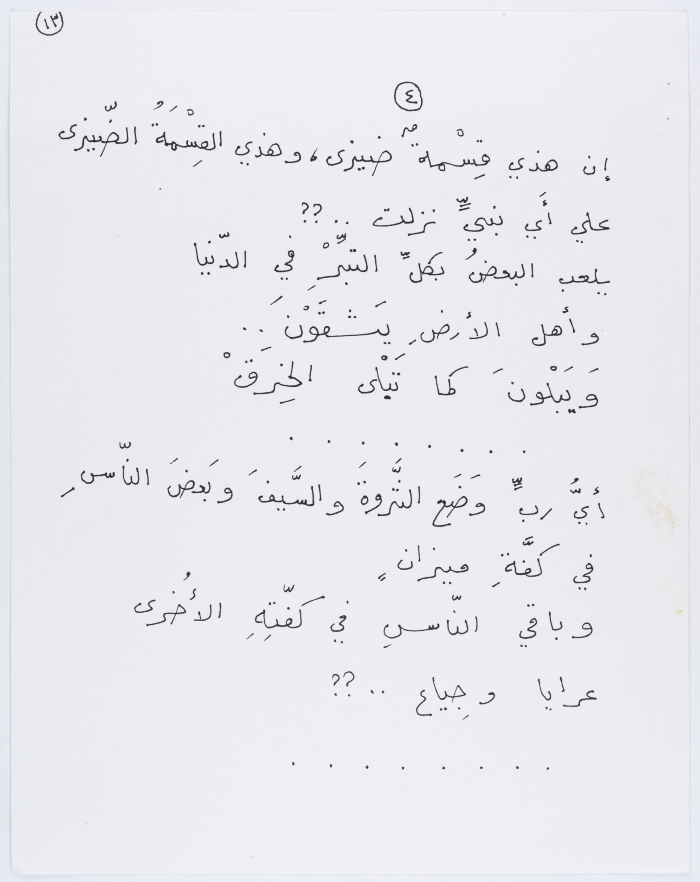 ١٣
٤
إن هذي قِسْمةٌ ضيزى، وهذي القِسْمَةُ الضّيزى
علي أَي نبيٍّ نزلت .. ؟؟
يلعب البعضُ بكلِّ التبِّرْ في الدّنيا
وأهل الأرضِ يَشقَوْنَ ..
وَيَبْلونَ كما تَبْلى الخِرَقْ
. . . . . . . .
أيُّ ربٍّ وَضَع الثَّروةَ والسَّيفَ وبَعضَ النّاسِ
في كفَّةِ ميزانٍ
وباقي النّاسِ في كفّتِهِ الأُخرى
عرايا وجِياع .. ؟؟
. . . . . . . .